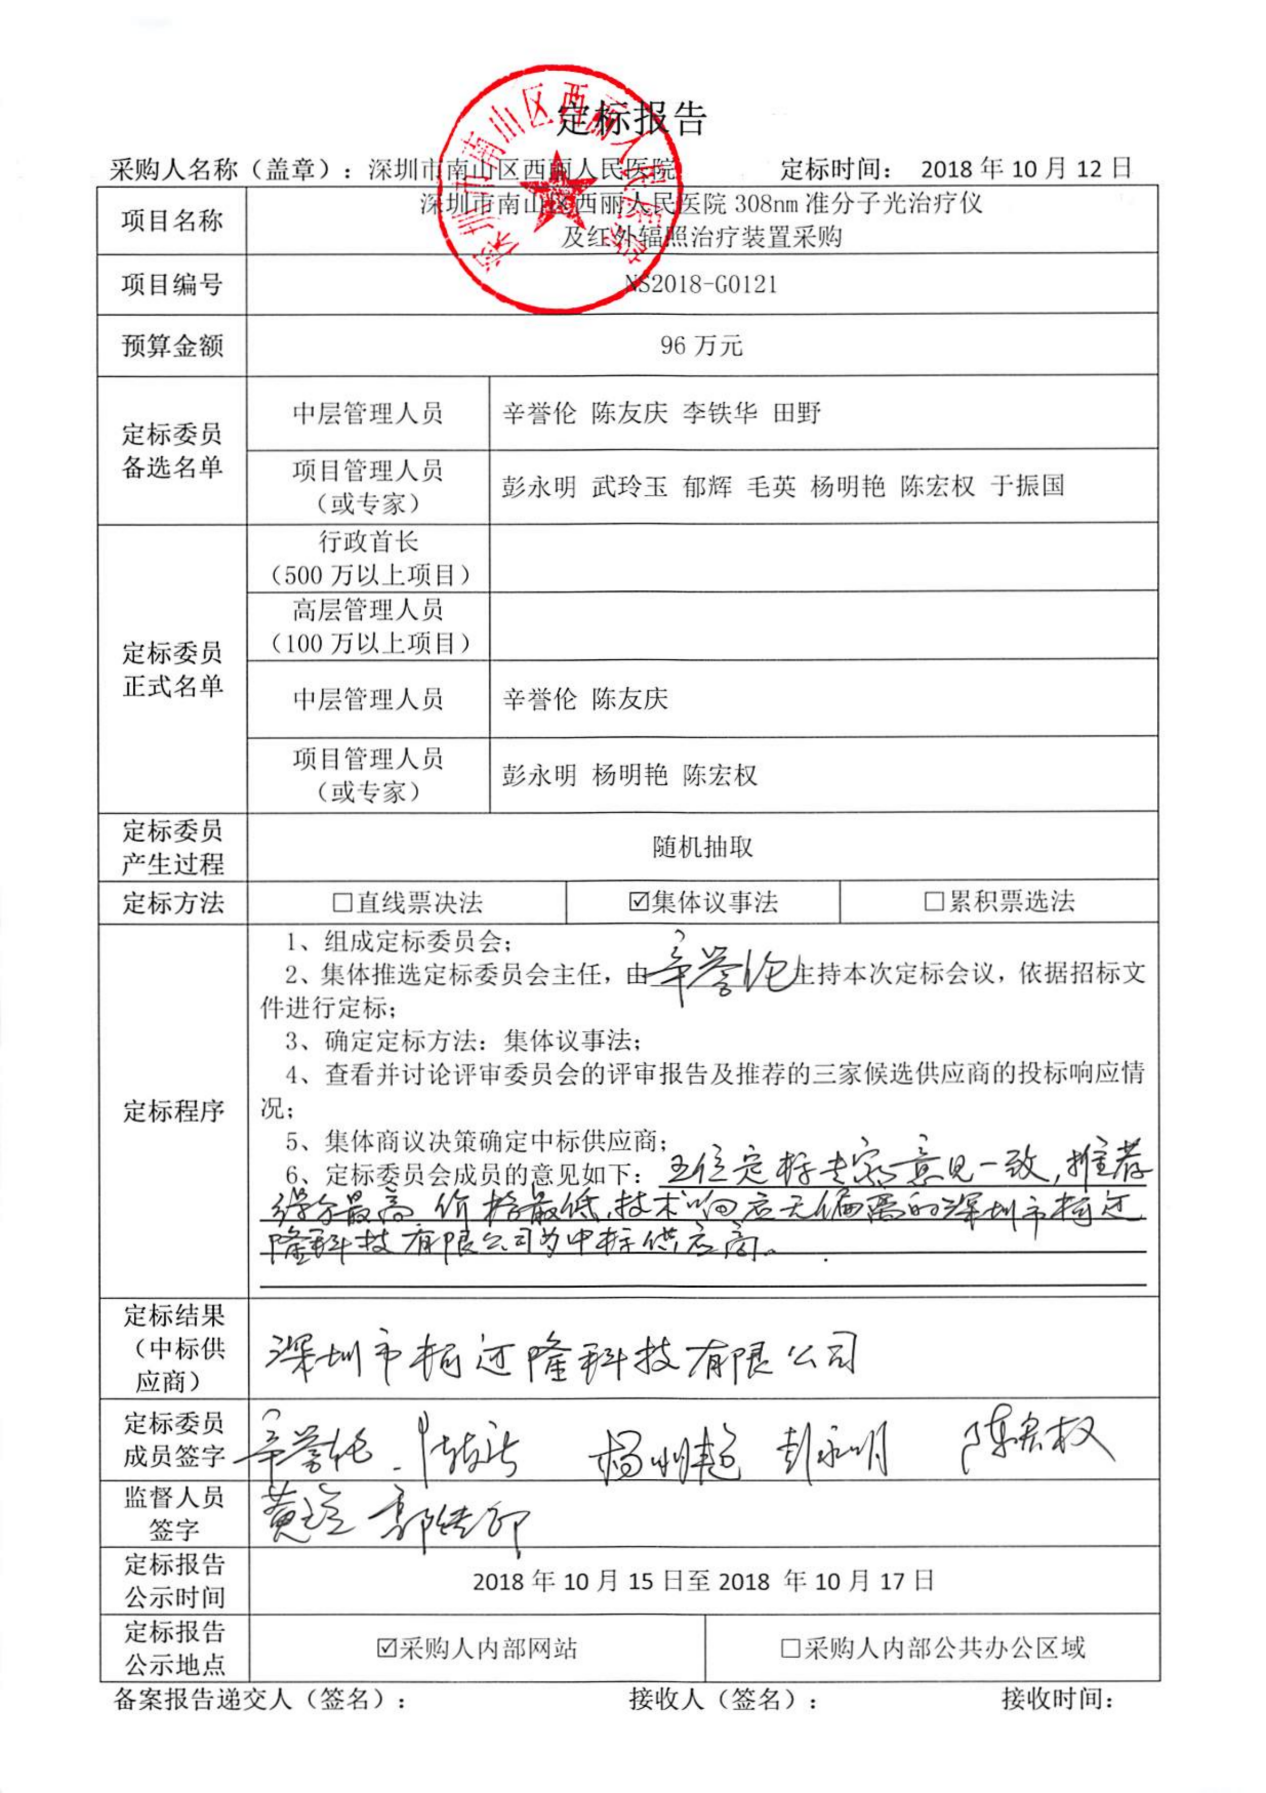 定标报告
采购人名称（盖章）：深圳市南山区西丽人民医院 定标时间： 2018 年 10 月 12 日
项目名称
深圳市南山区西丽人民医院 308nm 准分子光治疗仪
及红外辐照治疗装置采购
项目编号 NS2018-G0121
预算金额 96 万元
定标委员
备选名单
中层管理人员 辛誉伦 陈友庆 李铁华 田野
项目管理人员
（或专家）
彭永明 武玲玉 郁辉 毛英 杨明艳 陈宏权 于振国
定标委员
正式名单
行政首长
（500 万以上项目）
高层管理人员
（100 万以上项目）
中层管理人员 辛誉伦 陈友庆
项目管理人员
（或专家）
彭永明 杨明艳 陈宏权
定标委员
产生过程
随机抽取
定标方法 □直线票决法 ☑集体议事法 □累积票选法
定标程序
1、组成定标委员会；
2、集体推选定标委员会主任，由辛誉伦主持本次定标会议，依据招标文
件进行定标；
3、确定定标方法：集体议事法；
4、查看并讨论评审委员会的评审报告及推荐的三家候选供应商的投标响应情
况；
5、集体商议决策确定中标供应商；
6、定标委员会成员的意见如下：五位定标专家意见一致，推荐
得分最高、价格最低、技术响应无偏离的深圳市柯迈
隆科技有限公司为中标供应商。
定标结果
（中标供
应商）
深圳市柯迈隆科技有限公司
定标委员
成员签字
辛誉伦 陈友庆 杨明艳 彭永明 陈宏权
监督人员
签字
定标报告
公示时间
2018 年 10 月 15 日至 2018 年 10 月 17 日
定标报告
公示地点
☑采购人内部网站 □采购人内部公共办公区域
备案报告递交人（签名）： 接收人（签名）： 接收时间：
深圳市南山区西丽人民医院